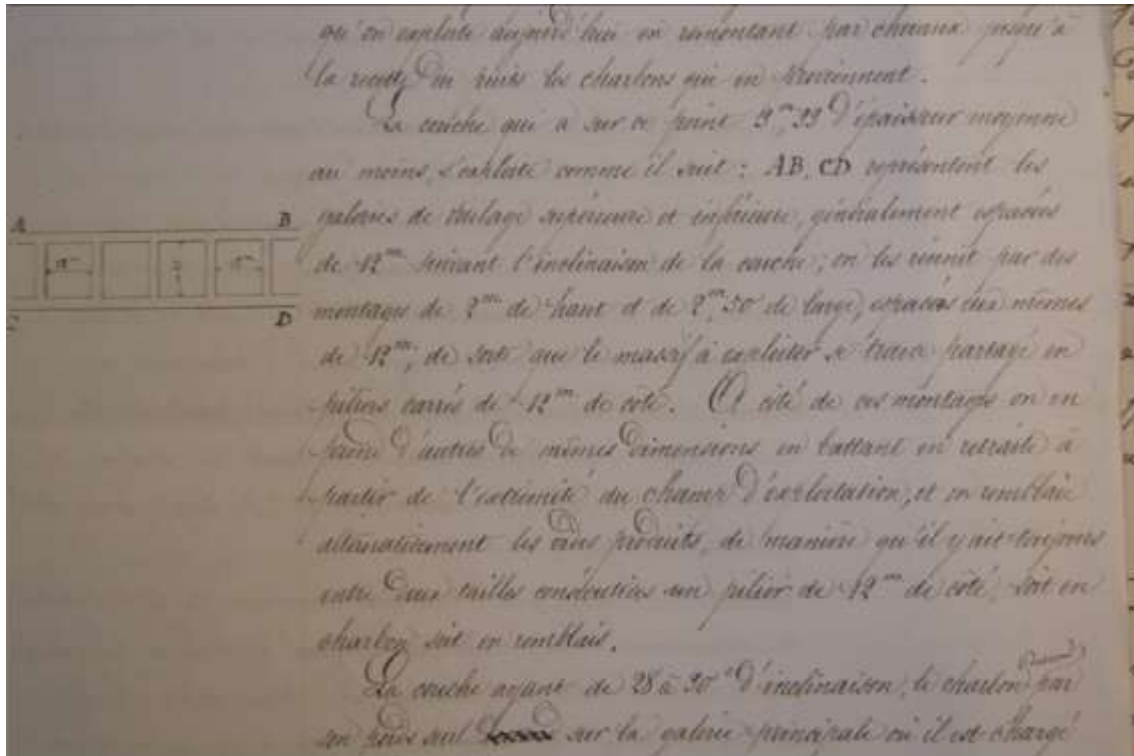 qu'on exploite aujourd'hui en remontant par chevaux jusqu'à
la recette du puits les charbons qui en proviennent.
La couche qui a sur ce point 3m,33 d'épaisseur moyenne
au moins, s'exploite comme il suit : AB, CD représentent les
galeries de roulage supérieure et inférieure, généralement espacées
A B
de 12m suivant l'inclinaison de la couche ; on les réunit par des
montages de 2m de haut et de 2m,50 de large, espacés eux mêmes
C D
de 12m, de sorte que le massif à exploiter se trouve partagé en
piliers carrés de 12m de côté. A côté de ces montages on en
prend d'autres de mêmes dimensions en battant en retraite à
partir de l'extrémité du champ d'exploitation, et on remblaie
alternativement les vides produits, de manière qu'il y ait toujours
entre deux tailles consécutives un pilier de 12m de côté, soit en
charbon soit en remblais.
La couche ayant de 28 à 30° d'inclinaison, le charbon par
son poids seul sur la galerie principale où il est chargé